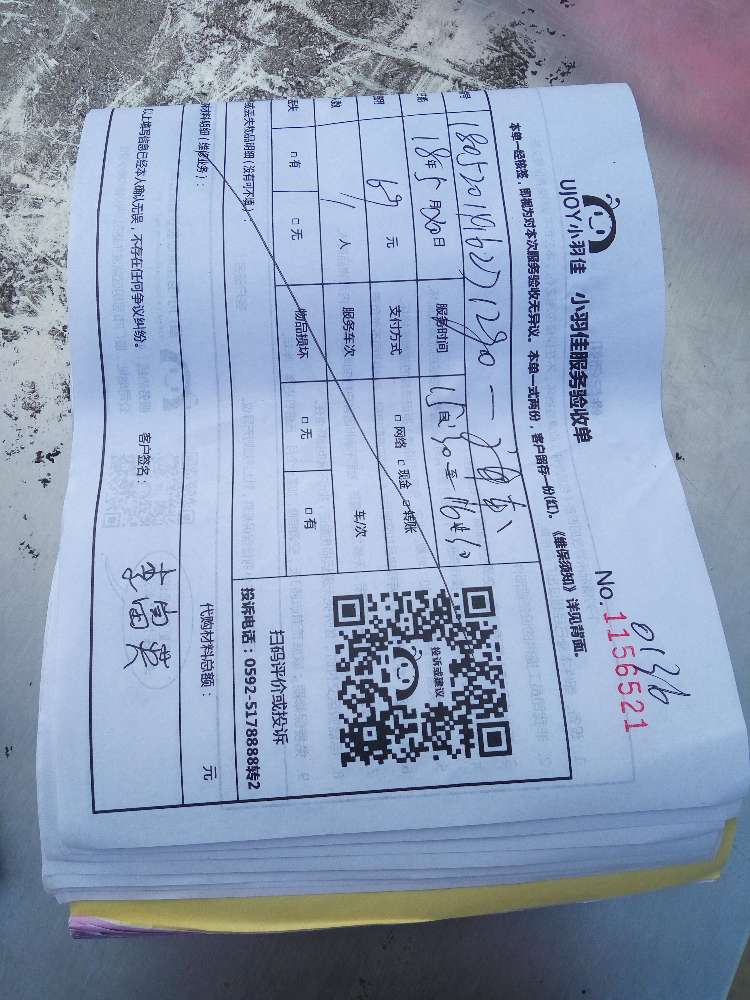 UJOY小羽佳 小羽佳服务验收单
No. 1156521
0136
本单一经接签，即视为对本次服务验收无异议。本单一式两份，客户留存一份(红)。《维保须知》详见背面。
18年5月20日 服务时间
69元 支付方式 网络 现金 转账
人 服务车次 车/次
有 无 物品损坏 无 有
丢失物品明细(没有可不填)：
材料明细(维修业务)：
代购材料总额： 元
投诉或建议
扫码评价或投诉
投诉电话：0592-5178888转2
以上填写信息已经本人确认无误，不存在任何争议纠纷。 客户签名：